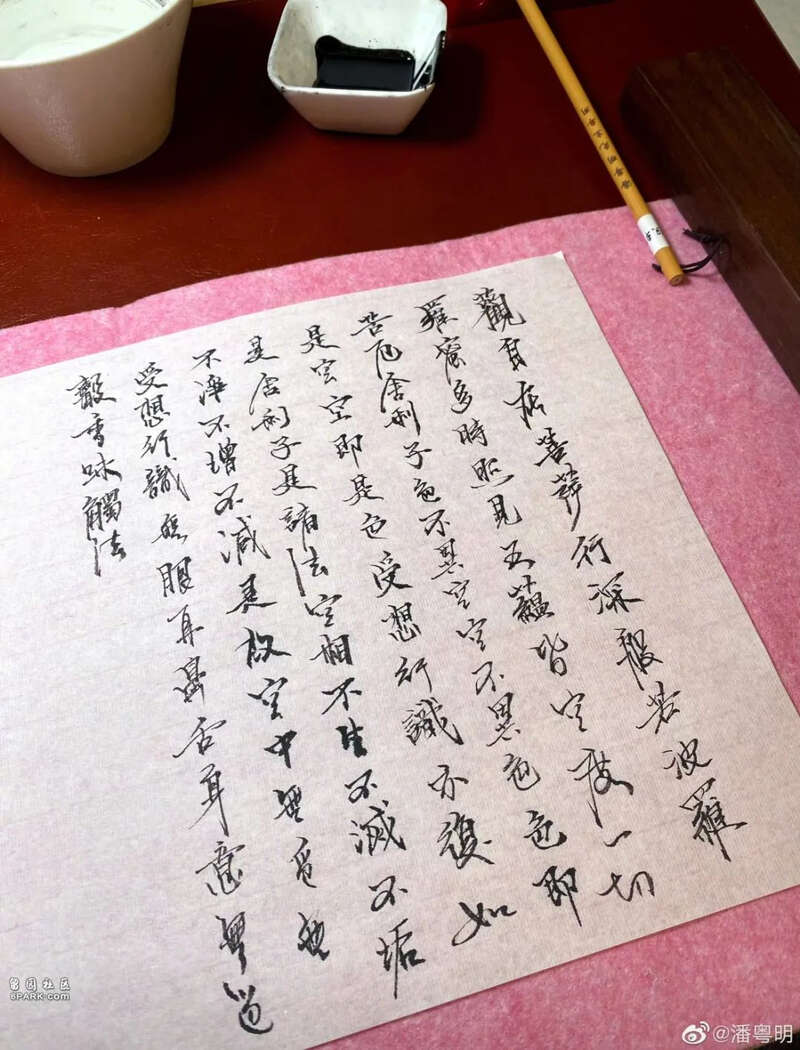 觀自在菩薩行深般若波羅
羅蜜多時照見五蘊皆空度一切
苦厄舍利子色不異空空不異色色即
是空空即是色受想行識亦復如
是舍利子是諸法空相不生不滅不垢
不淨不增不減是故空中無色無
受想行識無眼耳鼻舌身意無色
聲香味觸法
留园社区
6PARK.com
@潘粤明